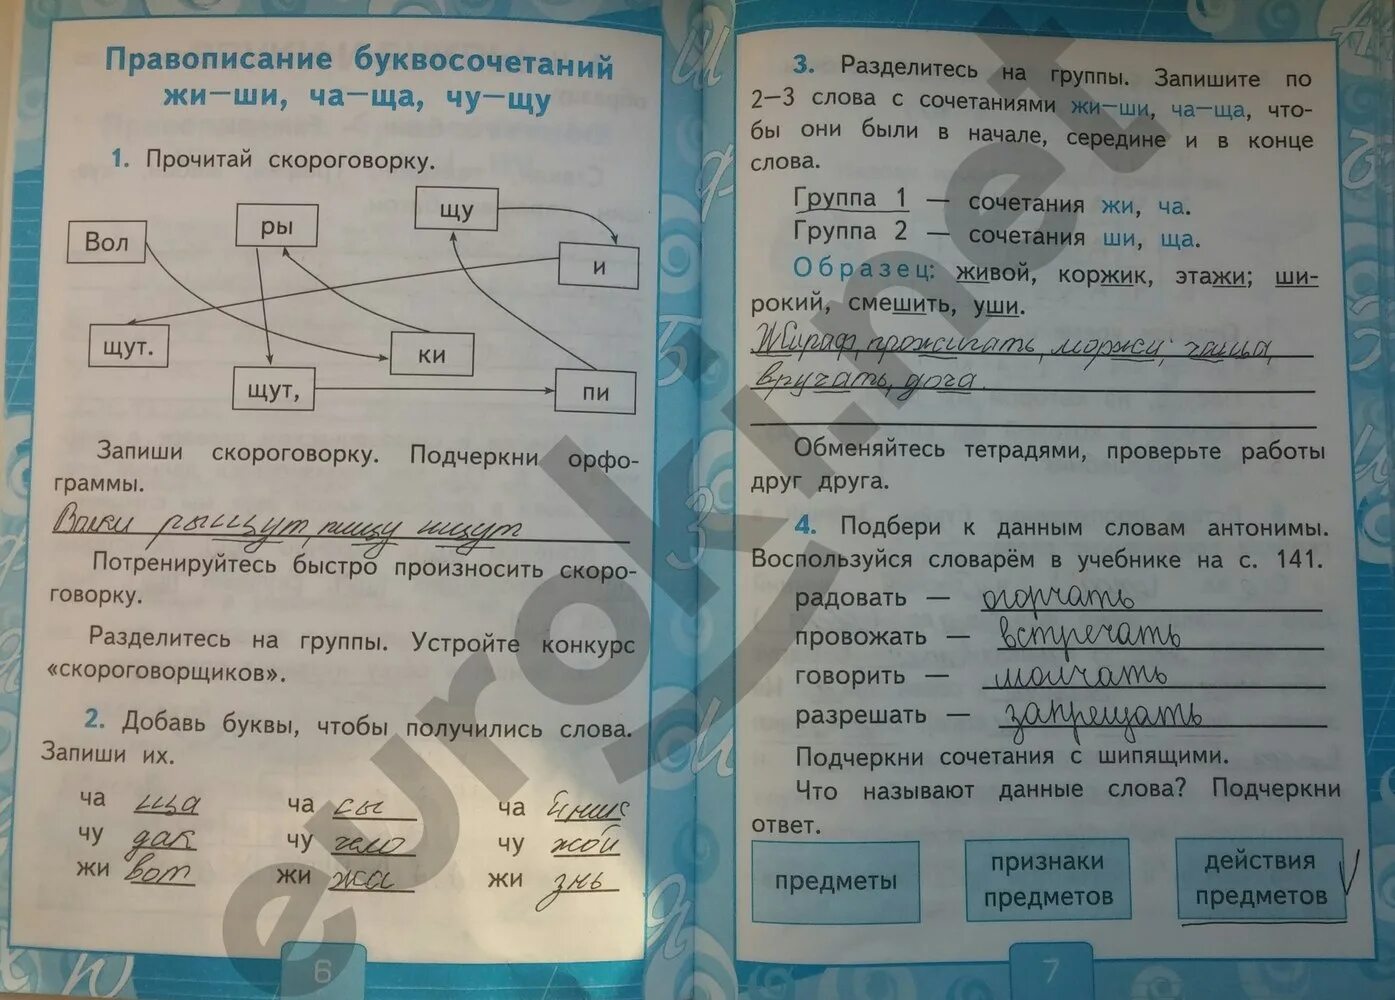 Правописание буквосочетаний
жи—ши, ча—ща, чу—щу
1. Прочитай скороговорку.
щу
ры
Вол
и
щут.
ки
щут,
пи
Запиши скороговорку. Подчеркни орфо-
граммы.
Волки рыщут, пищу ищут
Потренируйтесь быстро произносить скоро-
говорку.
Разделитесь на группы. Устройте конкурс
«скороговорщиков».
2. Добавь буквы, чтобы получились слова.
Запиши их.
ча ща ча сы ча йник
чу дак чу чело чу жой
жи вот жи жа жи знь
6
3. Разделитесь на группы. Запишите по
2—3 слова с сочетаниями жи—ши, ча—ща, что-
бы они были в начале, середине и в конце
слова.
Группа 1 — сочетания жи, ча.
Группа 2 — сочетания ши, ща.
Образец: живой, коржик, этажи; ши-
рокий, смешить, уши.
Жираф, прожигать, моржи, чашы,
вручать, доча.
Обменяйтесь тетрадями, проверьте работы
друг друга.
4. Подбери к данным словам антонимы.
Воспользуйся словарём в учебнике на с. 141.
радовать — огорчать
провожать — встречать
говорить — молчать
разрешать — запрещать
Подчеркни сочетания с шипящими.
Что называют данные слова? Подчеркни
ответ.
предметы
признаки
предметов
действия
предметов
7
euroki.net